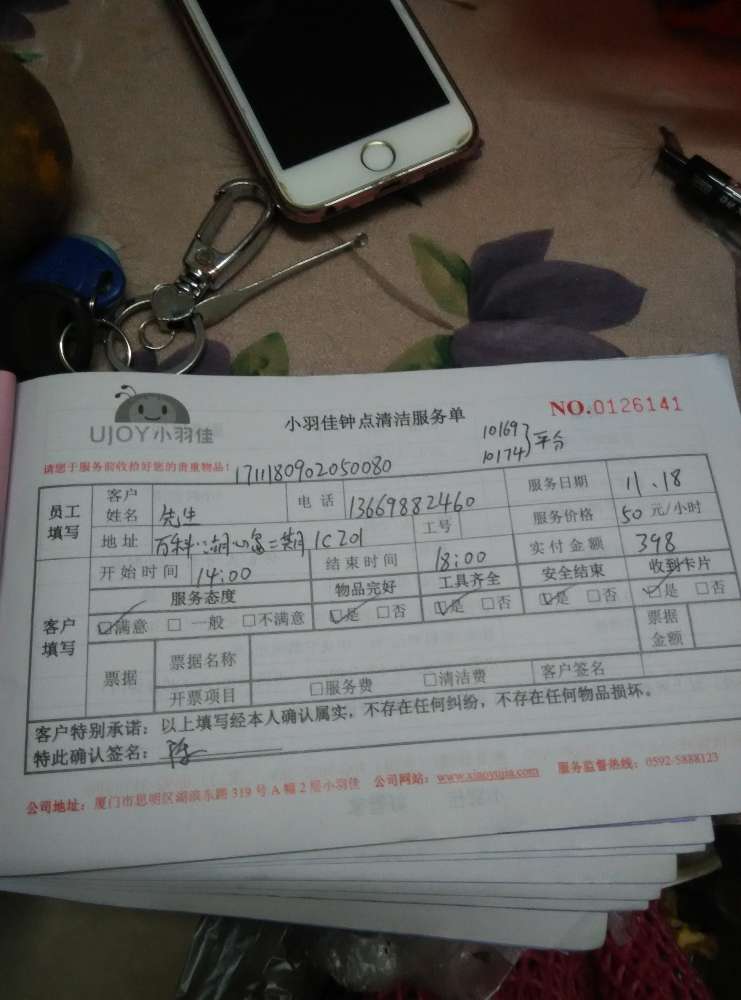 UJOY小羽佳
小羽佳钟点清洁服务单
NO.0126141
10169
10174 }平台
请您于服务前收拾好您的贵重物品!
1711180902050080
员工填写
客户姓名 先生 电话 13669882460 服务日期 11.18
地址 万科湖心岛二期1C201 工号 服务价格 50元/小时
开始时间 14:00 结束时间 18:00 实付金额 398
客户填写
服务态度 物品完好 工具齐全 安全结束 收到卡片
☑满意 □一般 □不满意 ☑是 □否 ☑是 □否 ☑是 □否 ☑是 □否
票据 票据名称 票据金额
开票项目 □服务费 □清洁费 客户签名
客户特别承诺:以上填写经本人确认属实,不存在任何纠纷,不存在任何物品损坏。
特此确认签名:陈
公司地址:厦门市思明区湖滨东路319号A幢2层小羽佳 公司网站:www.xiaoyujia.com 服务监督热线:0592-5888123